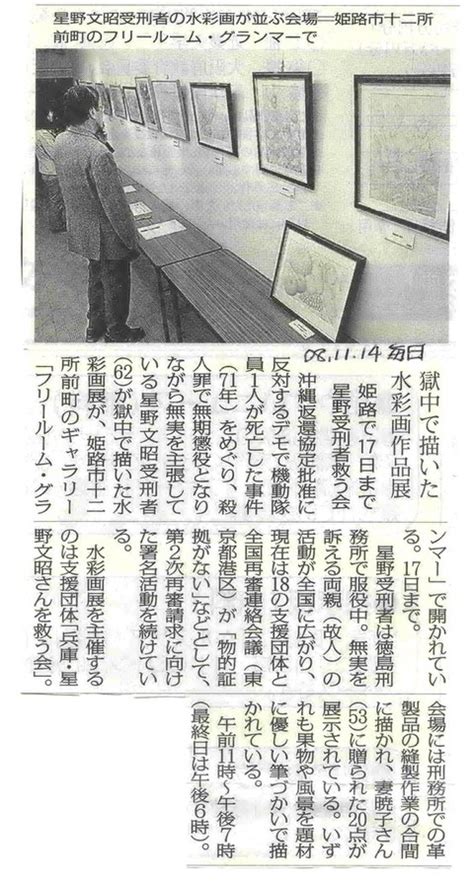 星野文昭受刑者の水彩画が並ぶ会場=姫路市十二所
前町のフリールーム・グランマーで
08.11.14 毎日
獄中で描いた
水彩画作品展
姫路で17日まで
星野受刑者救う会
沖縄返還協定批准に
反対するデモで機動隊
員1人が死亡した事件
(71年)をめぐり、殺
人罪で無期懲役となり
ながら無実を主張して
いる星野文昭受刑者
(62)が獄中で描いた水
彩画展が、姫路市十二
所前町のギャラリー
「フリールーム・グラ
ンマー」で開かれてい
る。17日まで。
星野受刑者は徳島刑
務所で服役中。無実を
訴える両親(故人)の
活動が全国に広がり、
現在は18の支援団体と
全国再審連絡会議(東
京都港区)が「物的証
拠がない」などとして、
第2次再審請求に向け
た署名活動を続けてい
る。
水彩画展を主催する
のは支援団体「兵庫・星
野文昭さんを救う会」。
会場には刑務所での革
製品の縫製作業の合間
に描かれ、妻暁子さん
(53)に贈られた20点が
展示されている。いず
れも果物や風景を題材
に優しい筆づかいで描
かれている。
午前11時〜午後7時
(最終日は午後6時)。